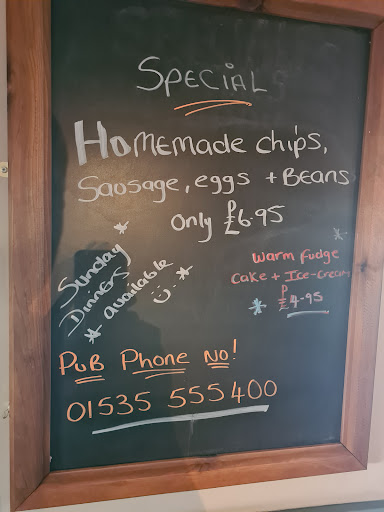 SPECIAL
Homemade chips,
Sausage, eggs + Beans
only £6.95
Sunday
Dinners
available
Warm Fudge
Cake + Ice-Cream
£4.95
PUB Phone No!
01535 555400